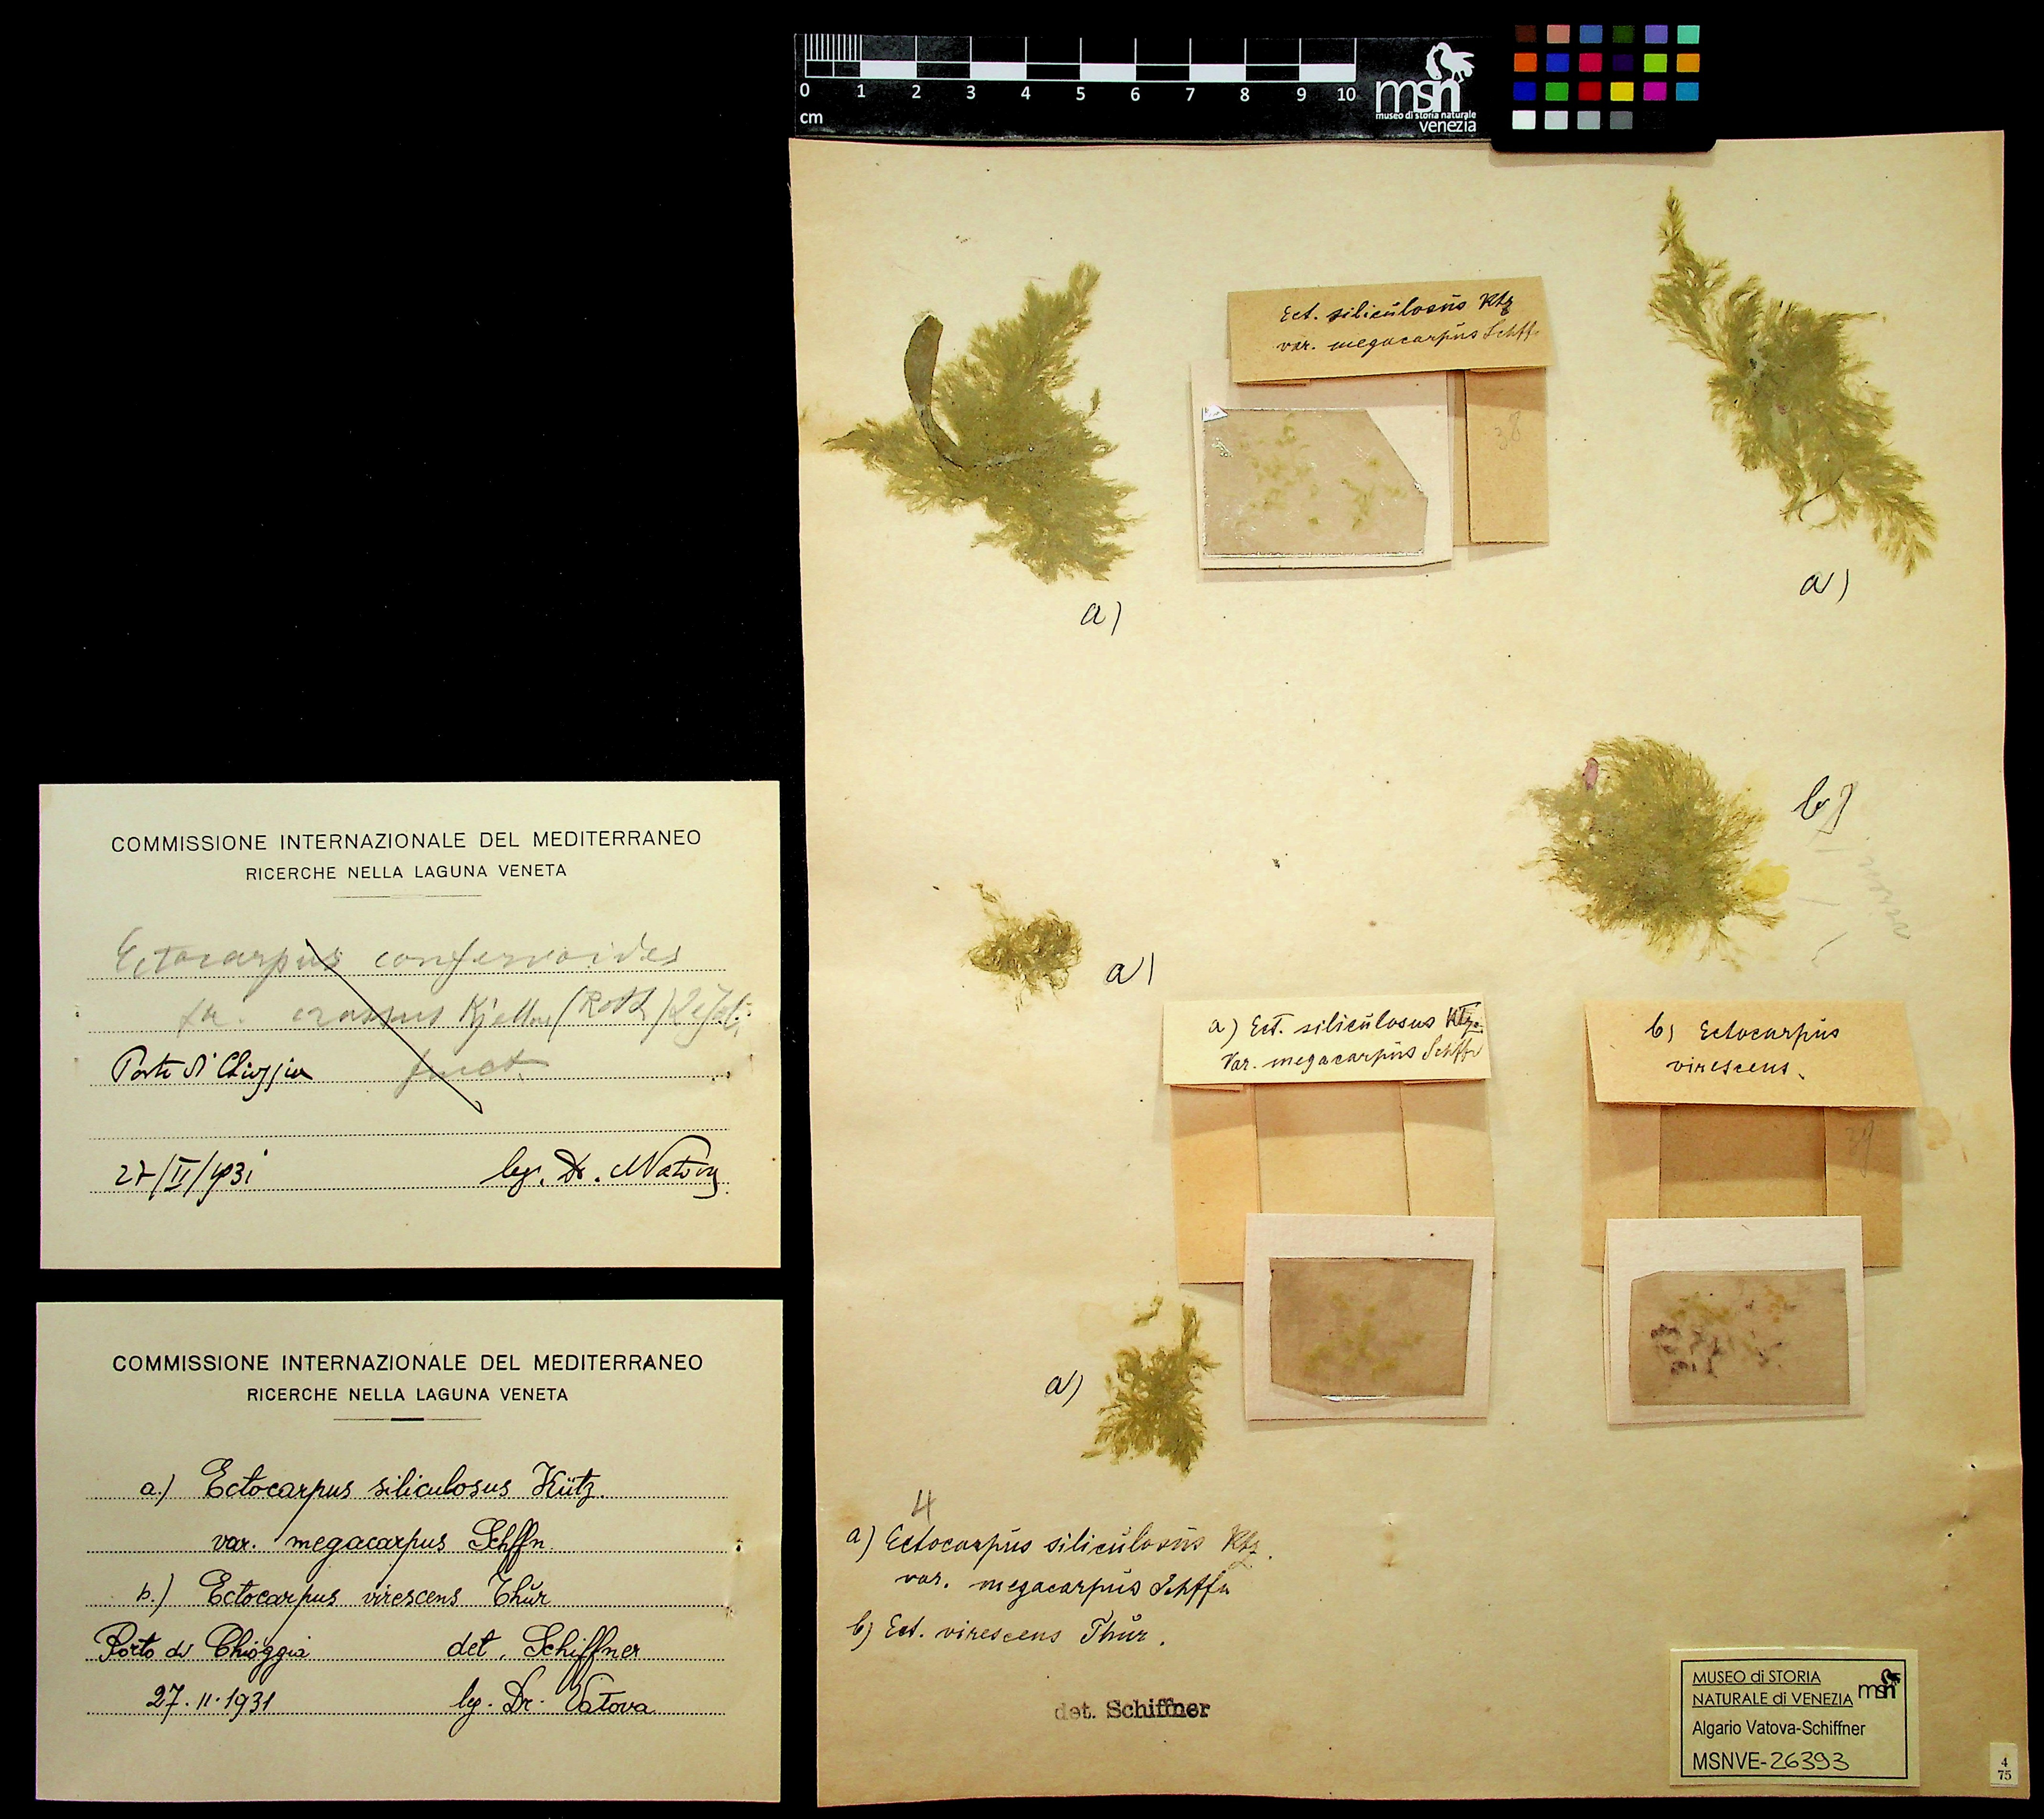 0 1 2 3 4 5 6 7 8 9 10
cm
msn
museo di storia naturale
venezia
Ect. siliculosus Ktz
var. megacarpus Schffn
38
a)
a)
b)
a)
a) Ect. siliculosus Ktz.
Var. megacarpus Schffn
b) Ectocarpus
virescens.
39
a)
4
a) Ectocarpus siliculosus Ktz.
var. megacarpus Schffn
b) Ect. virescens Thur.
det. Schiffner
MUSEO di STORIA
NATURALE di VENEZIA msn
Algario Vatova-Schiffner
MSNVE-26393
4
75
COMMISSIONE INTERNAZIONALE DEL MEDITERRANEO
RICERCHE NELLA LAGUNA VENETA
Ectocarpus confervoides
crassus Kjellm (Roth) Le Jol.
Porto di Chioggia fruct.
27/II/1931 leg. Dr. Vatova
COMMISSIONE INTERNAZIONALE DEL MEDITERRANEO
RICERCHE NELLA LAGUNA VENETA
a.) Ectocarpus siliculosus Kütz.
var. megacarpus Schffn.
b.) Ectocarpus virescens Thur
Porto di Chioggia det. Schiffner
27.II.1931 lg. Dr. Vatova